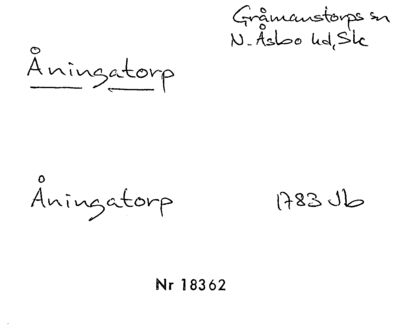 Gråmanstorps sn
N. Åsbo hd, Sk
Åningatorp
Åningatorp 1783 Jb
Nr 18362